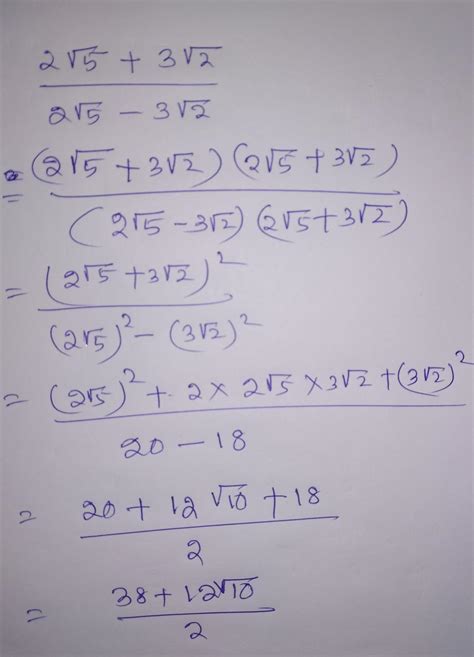 2√5 + 3√2
2√5 − 3√2
= (2√5 + 3√2) (2√5 + 3√2)
(2√5 − 3√2) (2√5 + 3√2)
= (2√5 + 3√2)²
(2√5)² − (3√2)²
= (2√5)² + 2 × 2√5 × 3√2 + (3√2)²
20 − 18
= 20 + 12√10 + 18
2
= 38 + 12√10
2